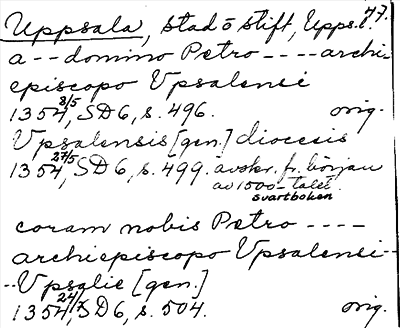 Uppsala, stad o stift, Upps. l. 77.
a -- domino Petro ---- archi-
episcopo Upsalensi
1354 8/5, SD6, s. 496. orig.
Upsalensis [gen.] diocesis
1354 27/5, SD6, s. 499. avskr. fr. början
av 1500-talet.
svartboken
coram nobis Petro ----
archiepiscopo Upsalensi --
-- Upsalie [gen.]
1354 24/7, SD6, s. 504. orig.